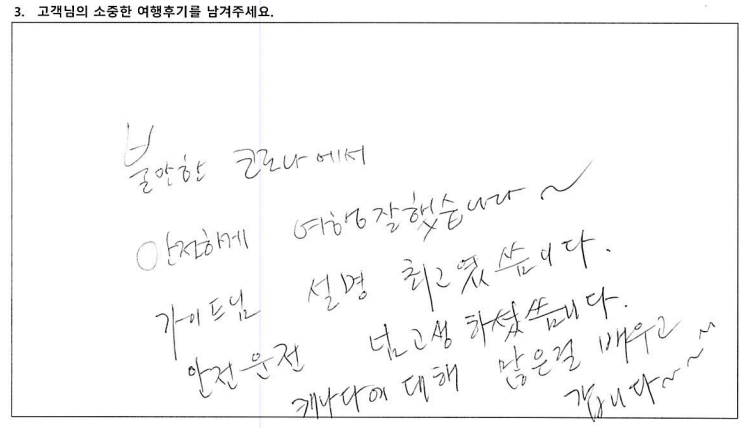 3. 고객님의 소중한 여행후기를 남겨주세요.
불안한 코로나에서
안전하게 여행 잘했습니다~
가이드님 설명 최고였씁니다.
안전운전 넘 고생하셨씁니다.
캐나다에 대해 많은걸 배우고
갑니다~~~